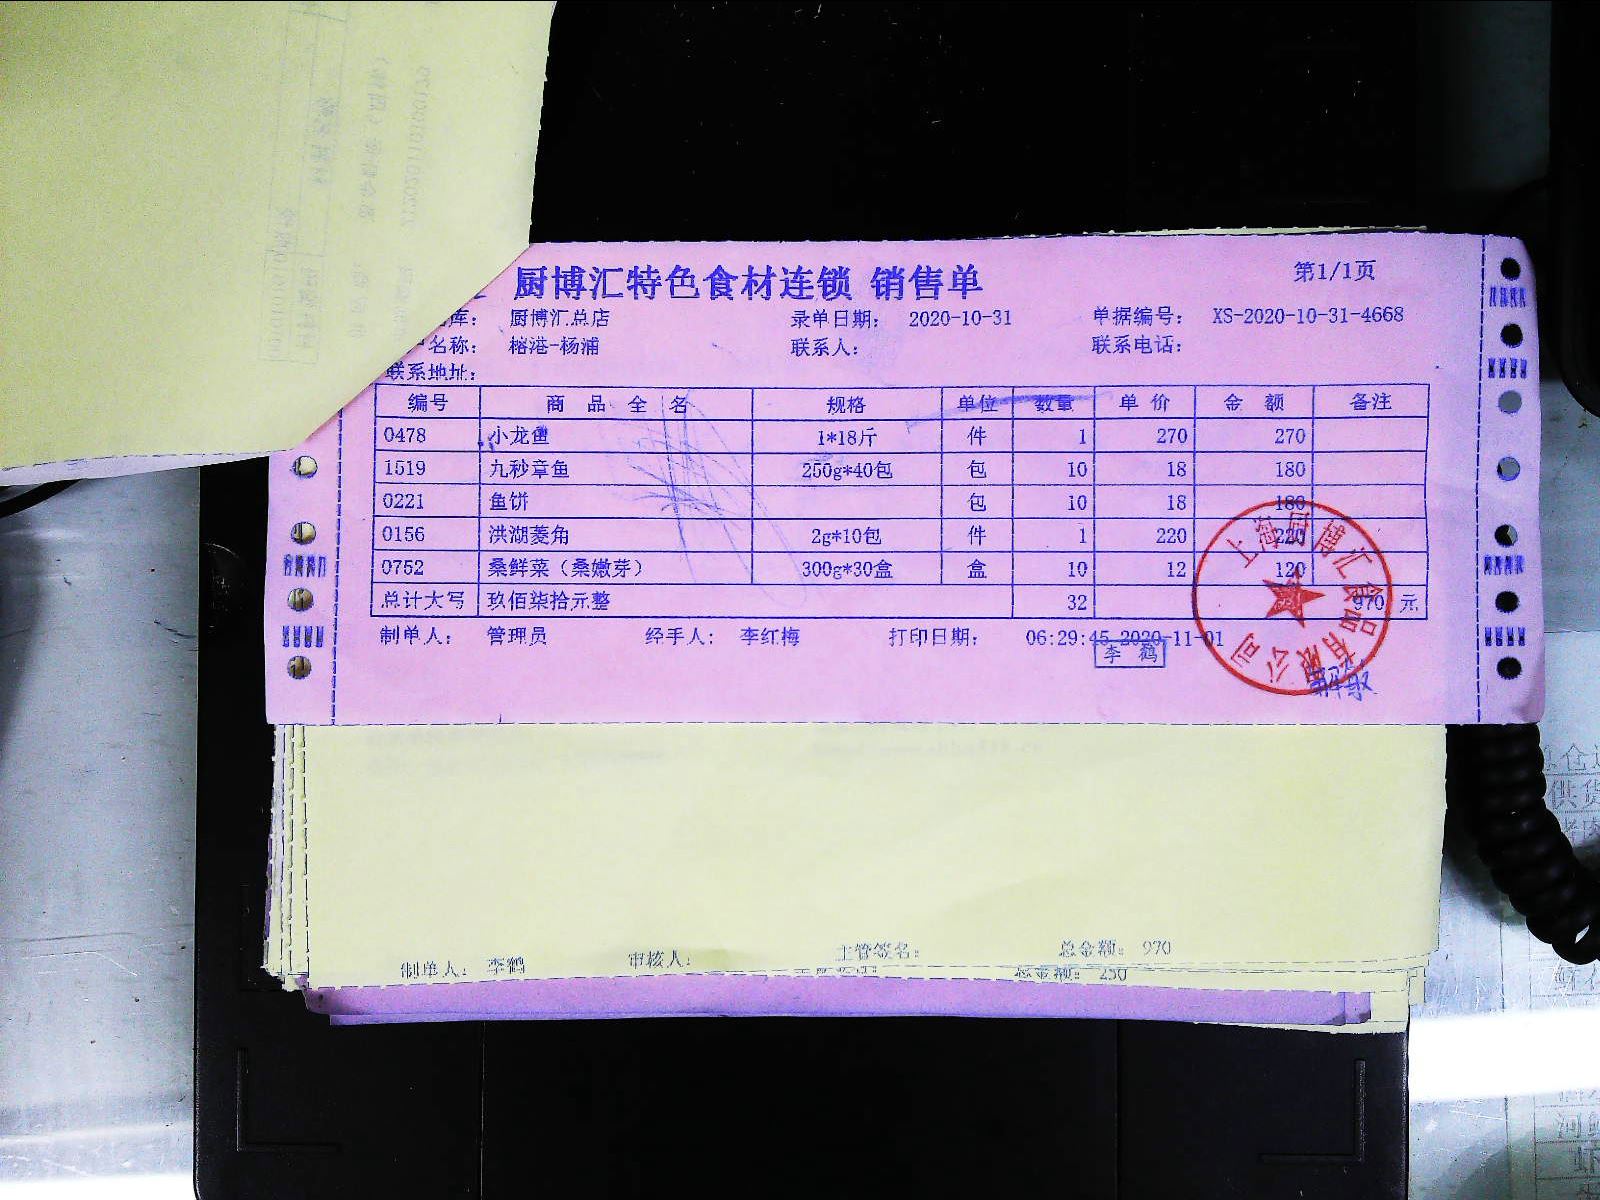 厨博汇特色食材连锁 销售单
第1/1页
库： 厨博汇总店 录单日期： 2020-10-31 单据编号： XS-2020-10-31-4668
名称： 榕港-杨浦 联系人： 联系电话：
联系地址：
编号 商品全名 规格 单位 数量 单价 金额 备注
0478 小龙鱼 1*18斤 件 1 270 270
1519 九秒章鱼 250g*40包 包 10 18 180
0221 鱼饼 包 10 18 180
0156 洪湖菱角 2g*10包 件 1 220 220
0752 桑鲜菜（桑嫩芽） 300g*30盒 盒 10 12 120
总计大写 玖佰柒拾元整 32 970 元
制单人： 管理员 经手人： 李红梅 打印日期： 06:29:45 2020-11-01
李 鹤
上海厨博汇食品有限公司
制单人： 李鹤 审核人： 主管签名： 总金额： 970
总金额： 250
供货